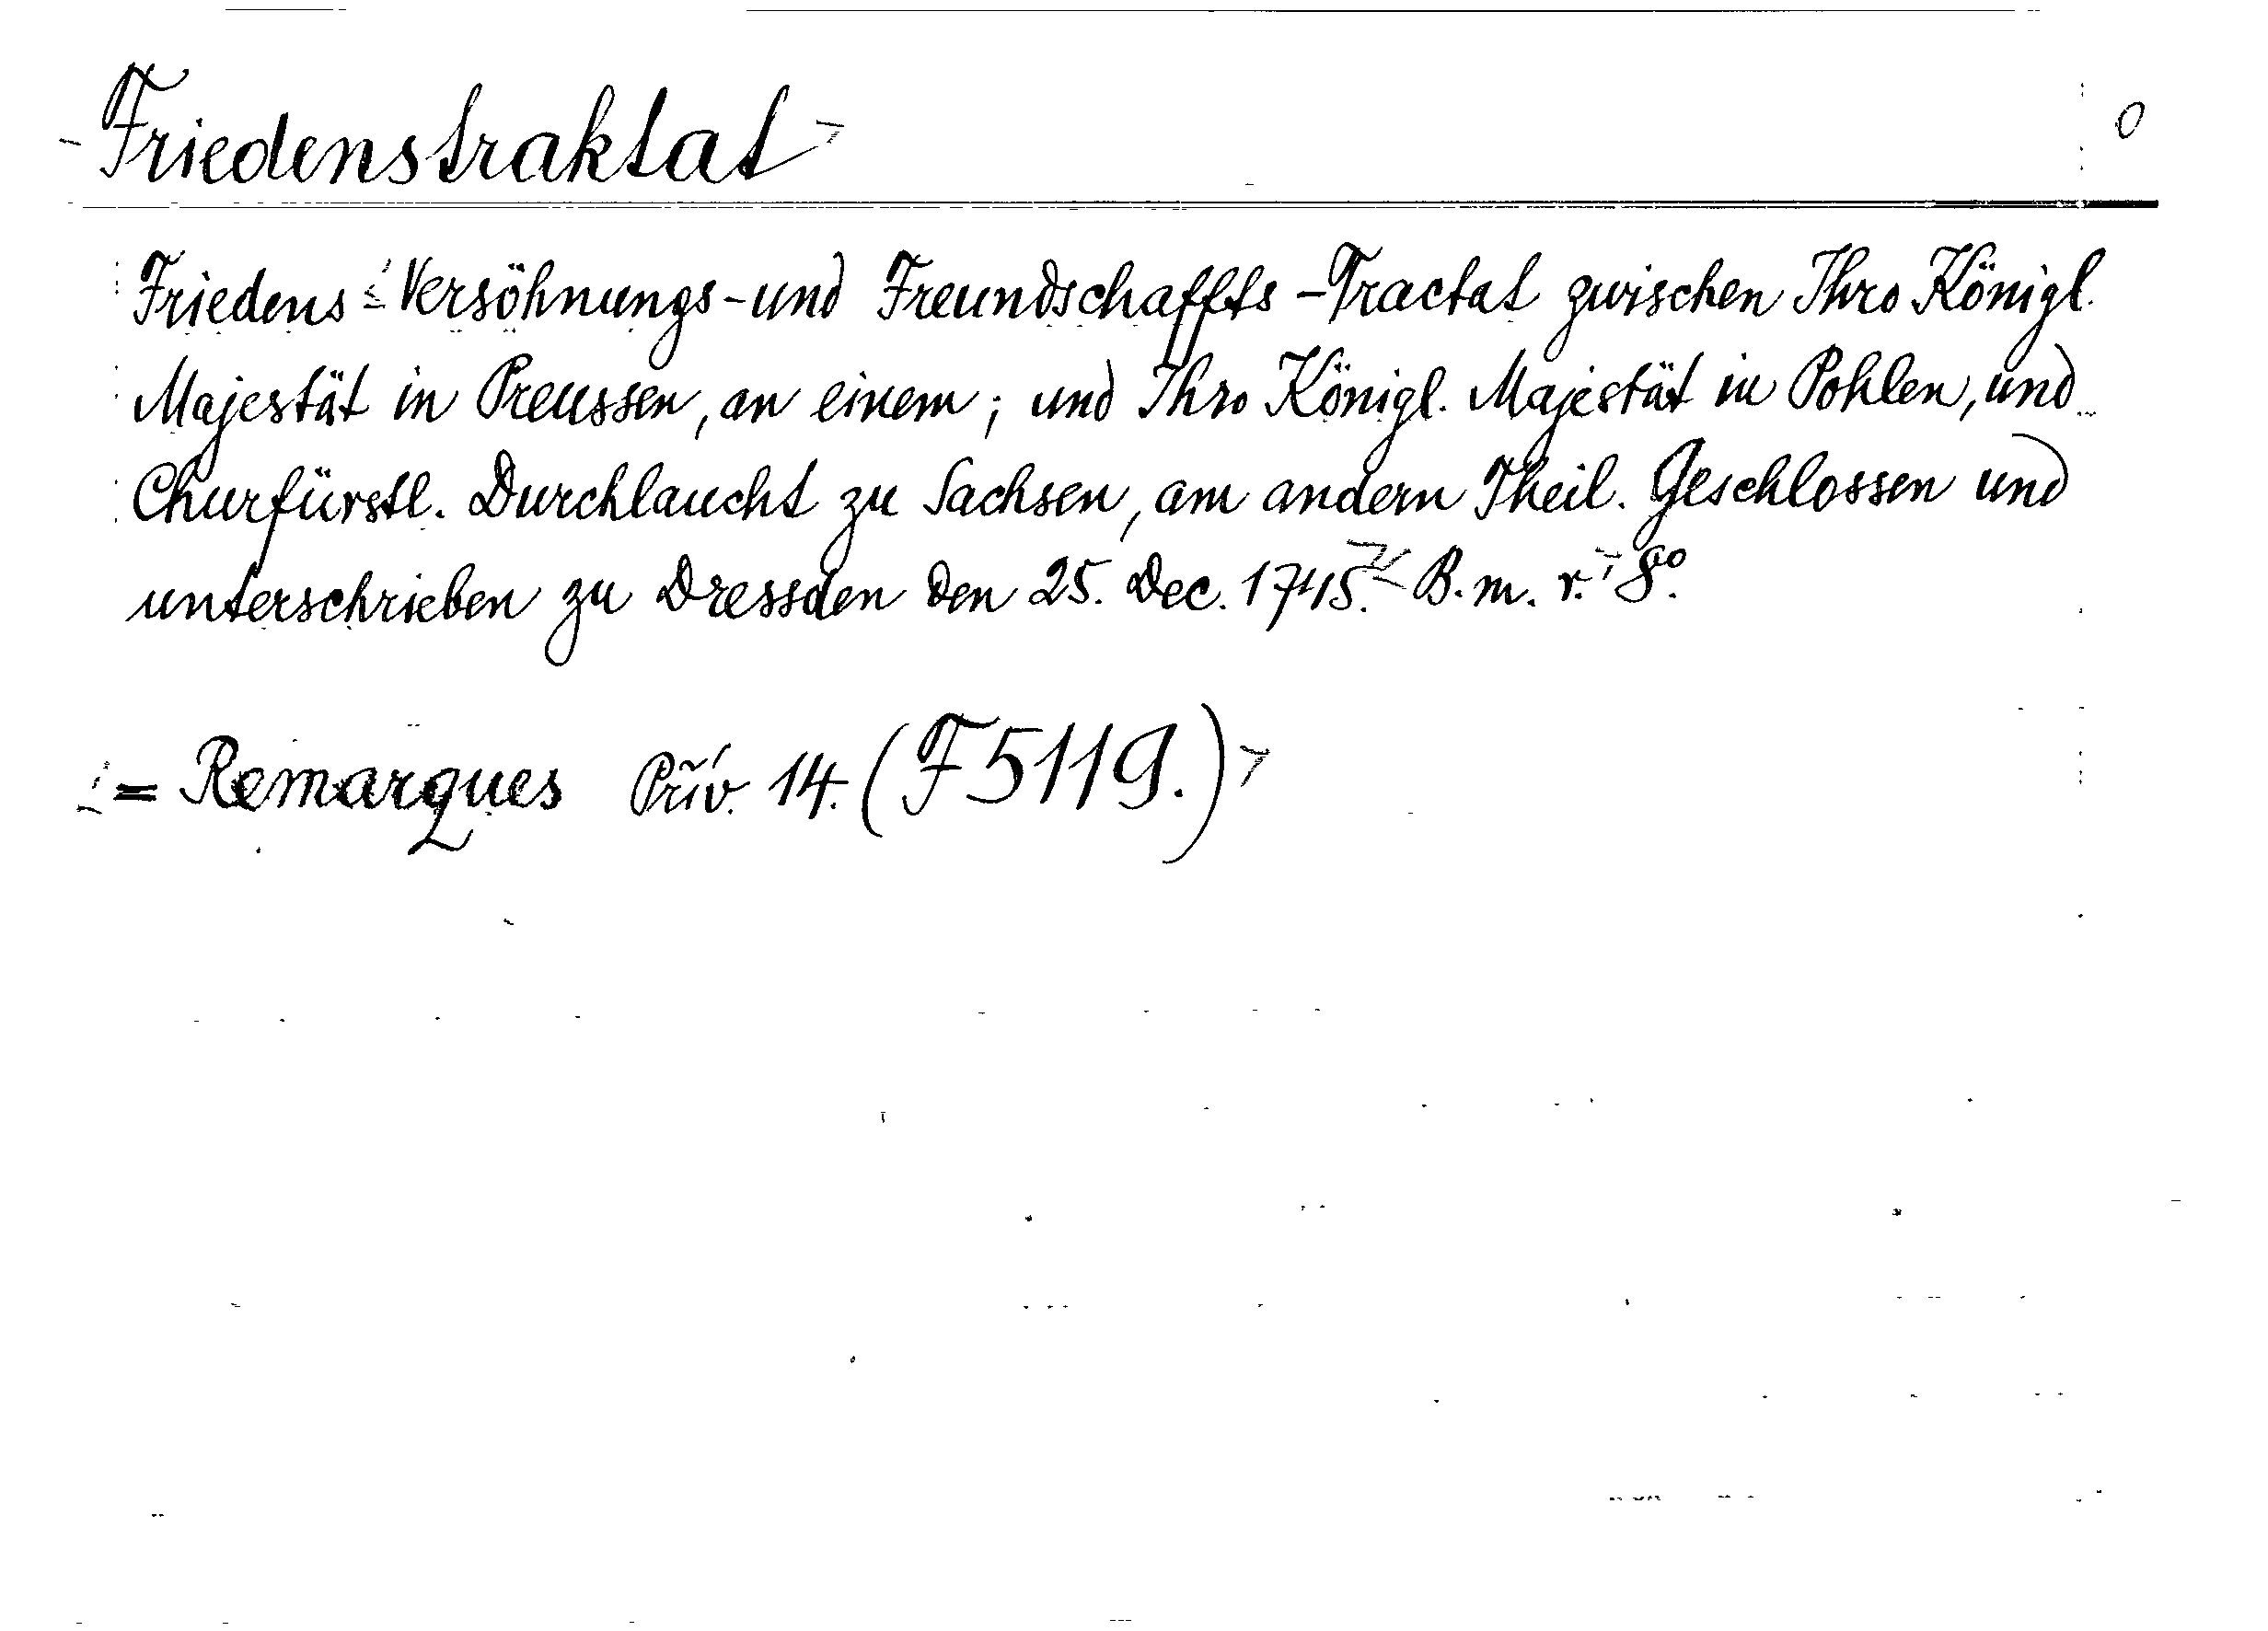 Friedenstraktat
0
Friedens-Versöhnungs-und Freundschaffts-Tractat zwischen Ihro Königl.
Majestät in Preussen, an einem; und Ihro Königl. Majestät in Pohlen, und
Churfürstl. Durchlaucht zu Sachsen, am andern Theil. Geschlossen und
unterschrieben zu Dressden den 25. Dec. 1745. B. m. r. 8º.
= Remarques Priv. 14. (F5119.)